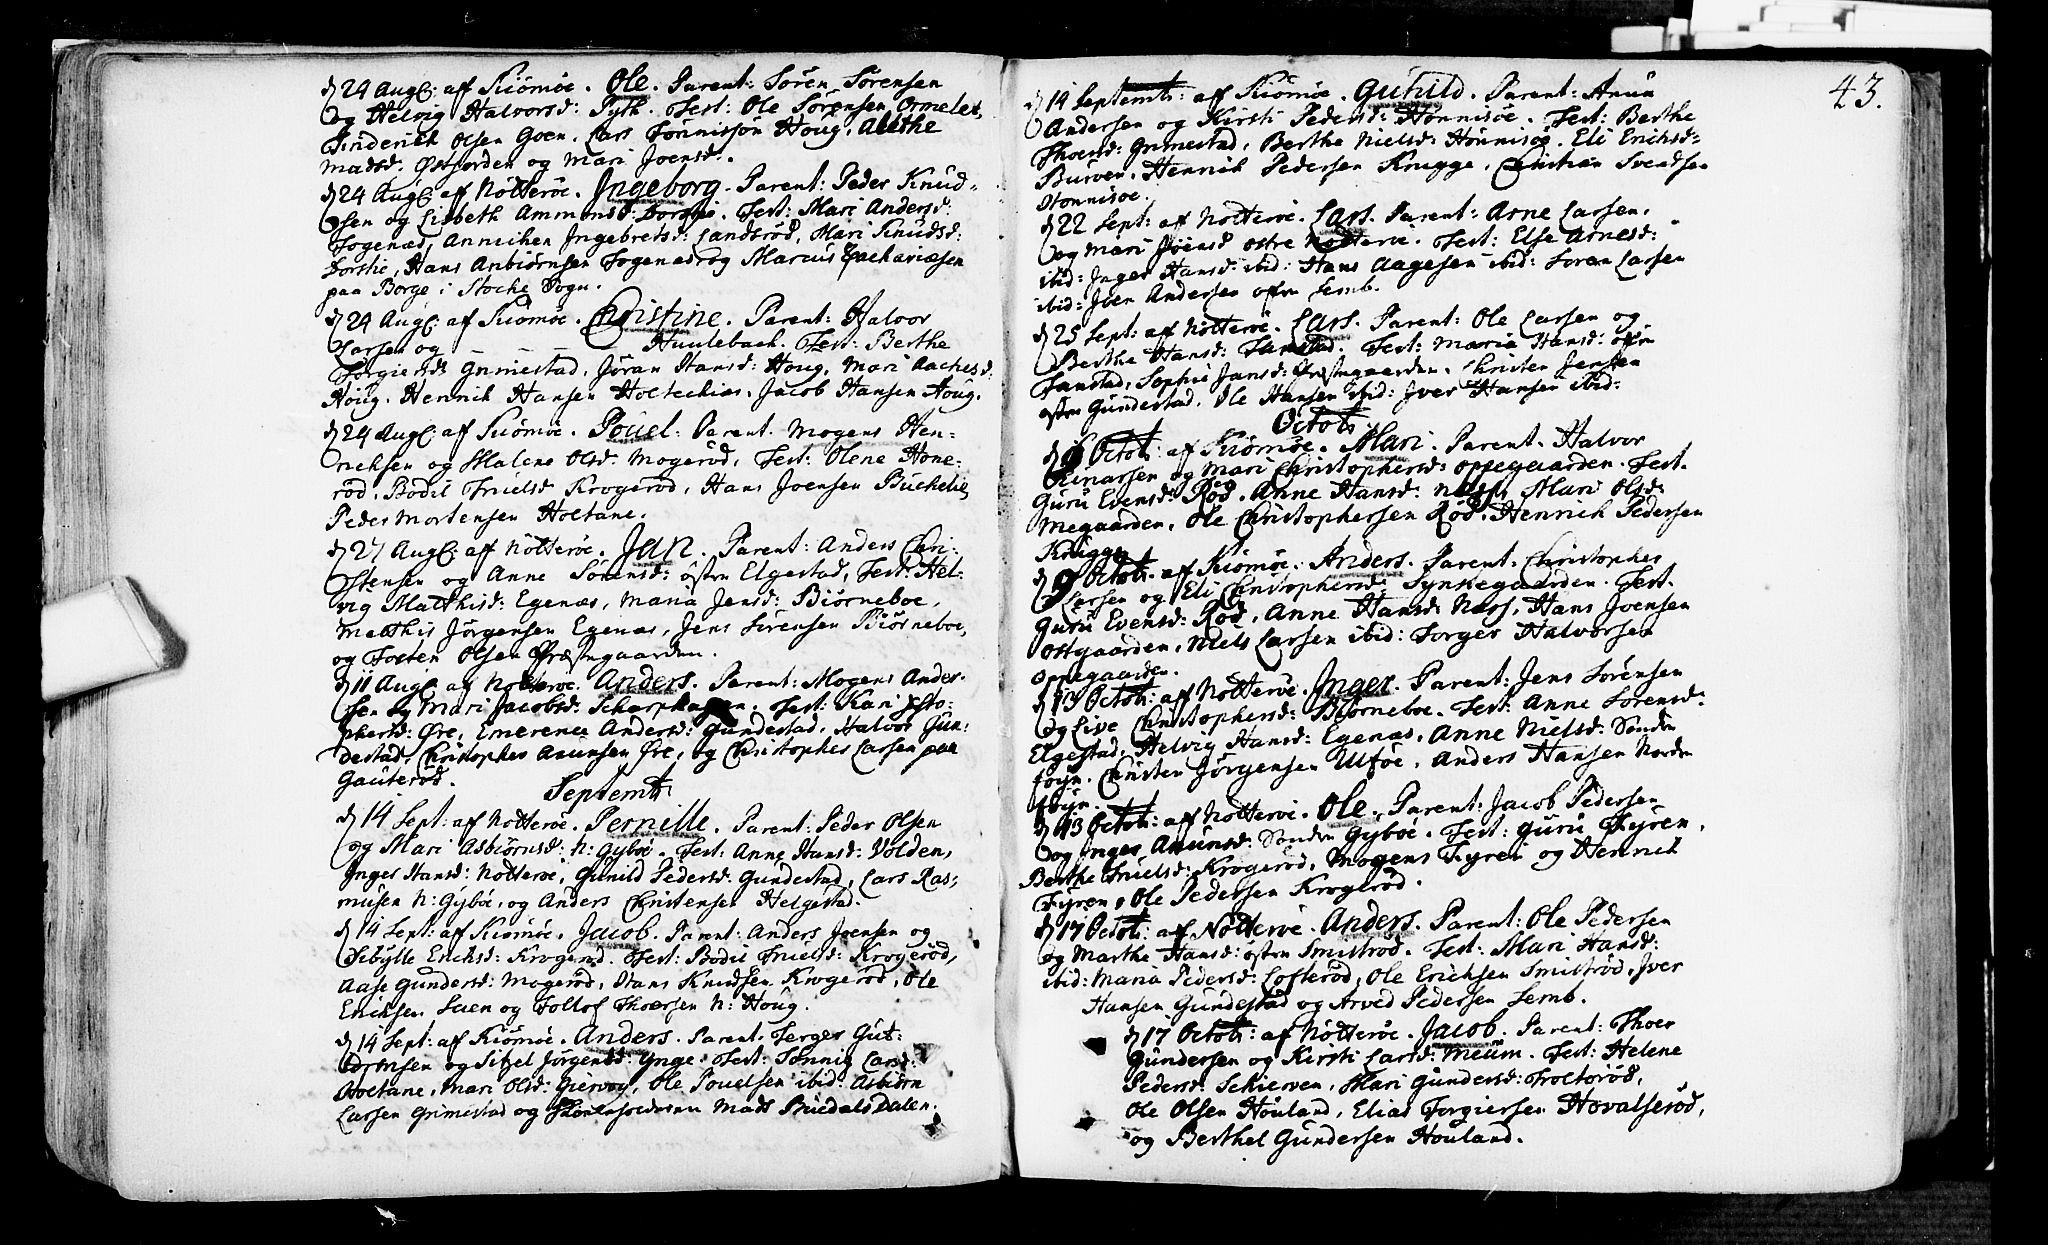 d 24 Aug: af Kiömöe. Ole. Parent: Sören Sörensen
og Helvig Halvorsd: Fyth. Test: Ole Sörensen Ormelet,
Friderich Olsen Goen. Lars Tönnissön Houg, Alethe
Madsd: Östjorden og Mari Joensd:
d 24 Aug: af Nötteröe. Ingeborg. Parent: Peder Knud-
sen og Lisbeth Ammonsd: Torstie. Test: Mari Andersd:
Togenæs, Annichen Ingebretsd: Landsröd, Mari Knudsd:
Torstie, Hans Anbiörnsen Togenæs og Marius Zachariæsen
paa Borge i Stocke Sogn.
d 24 Aug: af Kiömöe. Christine. Parent: Halvor
Larsen og _ _ _ _ Huulebach. Test: Berthe
Torgiersd: Grimestad, Jöran Hansd: Houg, Mari Aachesd:
Houg. Henrich Hansen Holtechias. Jacob Hansen Houg.
d 24 Aug: af Kiömöe. Pouel. Parent. Mogens Hen-
richsen og Malene Olsd: Mogeröd, Test: Olene Hone-
röd. Bodil Truelsd: Krogeröd, Hans Joensen Buchelie
Peder Mortensen Holtane.
d 27 Aug: af Nötteröe. Jan. Parent: Anders Chri-
stensen og Anne Sörensd: östre Elgestad, Test: Hel-
vig Matthisd: Egenæs, Maria Jensd: Biörneboe,
Matthis Jörgensen Egenæs, Jens Sörensen Biörneboe,
og Tosten Olsen Præstegaarden.
d 11 Aug: af Nötteröe. Anders. Parent: Mogens Ander-
sen og Mari Jacobsd: Scharphagen. Test: Kari Xsto-
phersd: Öre, Emerence Andersd: Gundestad, Halvor Gun-
destad, Christopher Amunsen Öre, og Christopher Larsen paa
Gauteröd.
Septemb:
d 14 Sept: af Nötteröe. Pernille. Parent: Peder Olsen
og Mari Asbiörnsd: N: Gyboe. Test: Anne Hansd: Volden,
Inger Hansd: Nötteröe, Gunild Pedersd: Gundestad, Lars Ras-
musen N: Gyboe, og Anders Christensen Helgestad.
d 14 Sept: af Kiömöe. Jacob. Parent: Anders Joensen og
Sebylle Ericksd: Krogeröd. Test: Bodil Truelsd: Krogeröd,
Aase Gundersd: Mogeröd, Hans Knudsen Krogeröd, Ole
Erichsen Luen og Tollof Thoersen N: Houg.
d 14 Sept: af Kiömöe. Anders. Parent. Torger Gut-
ormsen og Sitzel Jörgensd: Ynge. Test: Tönnis Larsd:
Holtane, Mari Olsd: Giervog, Ole Pouelsen ibid: Asbiörn
Larsen Grimestad og Mads Buedalsdalen.
43.
d 14 Septemb: af Kiömöe. Guhild. Parent: Amun
Andersen og Kirsti Pedersd: Hönnisöe. Test: Berthe
Thoersd: Grimestad, Berthe Nielsd: Hönnisöe. Eli Erichsd:
Burven. Henrich Pedersen Krugge, Christian Svendsen
Hönnisöe.
d 22 Sept: af Nötteröe. Lars. Parent: Arne Larsen,
og Mari Joensd: östre Nötteröe. Test: Else Arnesd:
ibid: Inger Hansd: ibid: Hans Aagesen ibid: Sören Larsen
ibid: Joen Andersen östre Semb.
d 25 Sept: af Nötteröe. Lars. Parent: Ole Larsen og
Berthe Hansd: Tanstad. Test: Maria Hansd: östre
Tanstad, Sophie Jansd: Præstegaarden. Christen Jensen
östre Gundestad. Ole Hansen ibid: Iver Hansen ibid:
Octob:
d 6 Octob: af Kiömöe. Mari. Parent. Halvor
Einarsen og Mari Christophersd: Oppegaarden. Test.
Guru Evensd: Röd. Anne Hansd: Næss, Mari Olsd:
Megaarden, Ole Christophersen Röd. Henrich Pedersen
Krugge.
d 9 Octob: af Kiömöe. Anders. Parent. Christopher
Larsen og Eli Christophersd: Synstegaarden. Test.
Guru Evensd: Röd, Anne Hansd: Næss, Hans Joensen
Östgaarden, Niels Larsen ibid: Torger Halvorsen
Oppegaarden.
d 13 Octob: af Nötteröe. Inger. Parent: Jens Sörensen
og Live Christophersd: Biörneboe. Test: Anne Sörensd:
Elgestad, Helvig Hansd: Egenæs, Anne Nielsd: Sönder
Föyn. Christen Jörgensen Ulföe, Anders Hansen Norder
Föyn.
d 13 Octob: af Nötteröe. Ole. Parent: Jacob Pedersen
og Inger Amunsd: Sönder Gyboe. Test: Guru Fyren,
Berthe Truelsd: Krogeröd, Mogens Fyren og Henrich
Fyren, Ole Pedersen Krogeröd.
d 17 Octob: af Nötteröe. Anders. Parent: Ole Pedersen
og Marthe Hansd: östre Smiströd. Test: Mari Hansd:
ibid: Maria Pedersd: Lofteröd, Ole Erichsen Smiströd, Iver
Hansen Gundestad og Arved Pedersen Semb.
d 17 Octob: af Nötteröe. Jacob. Parent: Thoer
Gundersen og Kirsti Larsd: Meum. Test: Helene
Pedersd: Schierven, Mari Gundersd: Troltöröd,
Ole Olsen Houland, Elias Torgiersen Hovalseröd,
og Berthel Gundersen Houland.